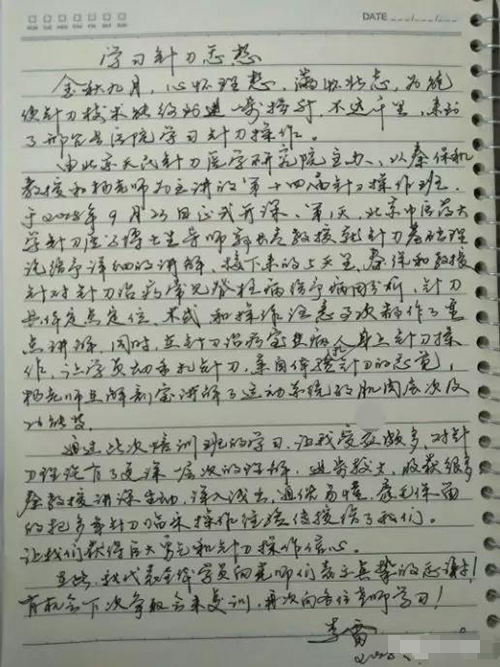 DATE
学习针刀感想
金秋九月，心怀理想，满怀壮志，为能
使针刀技术，不远千里，来到
了县医院学习针刀操作。
由北京天氏针刀医学研究院主办，以秦保和
教授和杨老师为主讲的第十四届针刀操作班，
于2018年9月23日正式开课，第1天，北京中医药大
学针刀医学博士生导师教授就针刀基础理
论给予详细的讲解，接下来的5天里，秦保和教授
针对针刀治疗常见脊柱病给予病因分析，针刀
具体定点定位，术式和操作注意事次都作了重
点讲解，同时，在针刀治病人身上针刀操
作，让学员切手扎针刀，亲自体验针刀的感觉，
杨老师在解剖室讲解了运动系统的肌肉层次及
功能等。
通过此次培训班的学习，让我受益颇多，对针
刀理论有了更深一层次的理解，进步较大，收获很多
秦教授讲课生动，深入浅出，通俗易懂，毫无保留
的把多年针刀临床操作经验传授给了我们。
让我们获得巨大勇气和针刀操作信心。
在此，我代表全体学员向老师们表示真挚的感谢！
有机会下次争取会来复训，再次向各位老师学习！
李雷